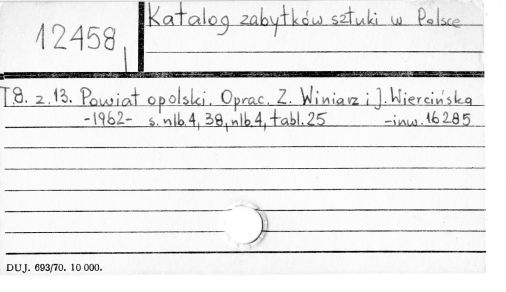 12458
Katalog zabytków sztuki w Polsce
T.8. z.13. Powiat opolski. Oprac. Z. Winiarz i J. Wiercińska
-1962- s.nlb.4, 38, nlb.4, tabl.25 -inw.16285
DUJ. 693/70. 10 000.